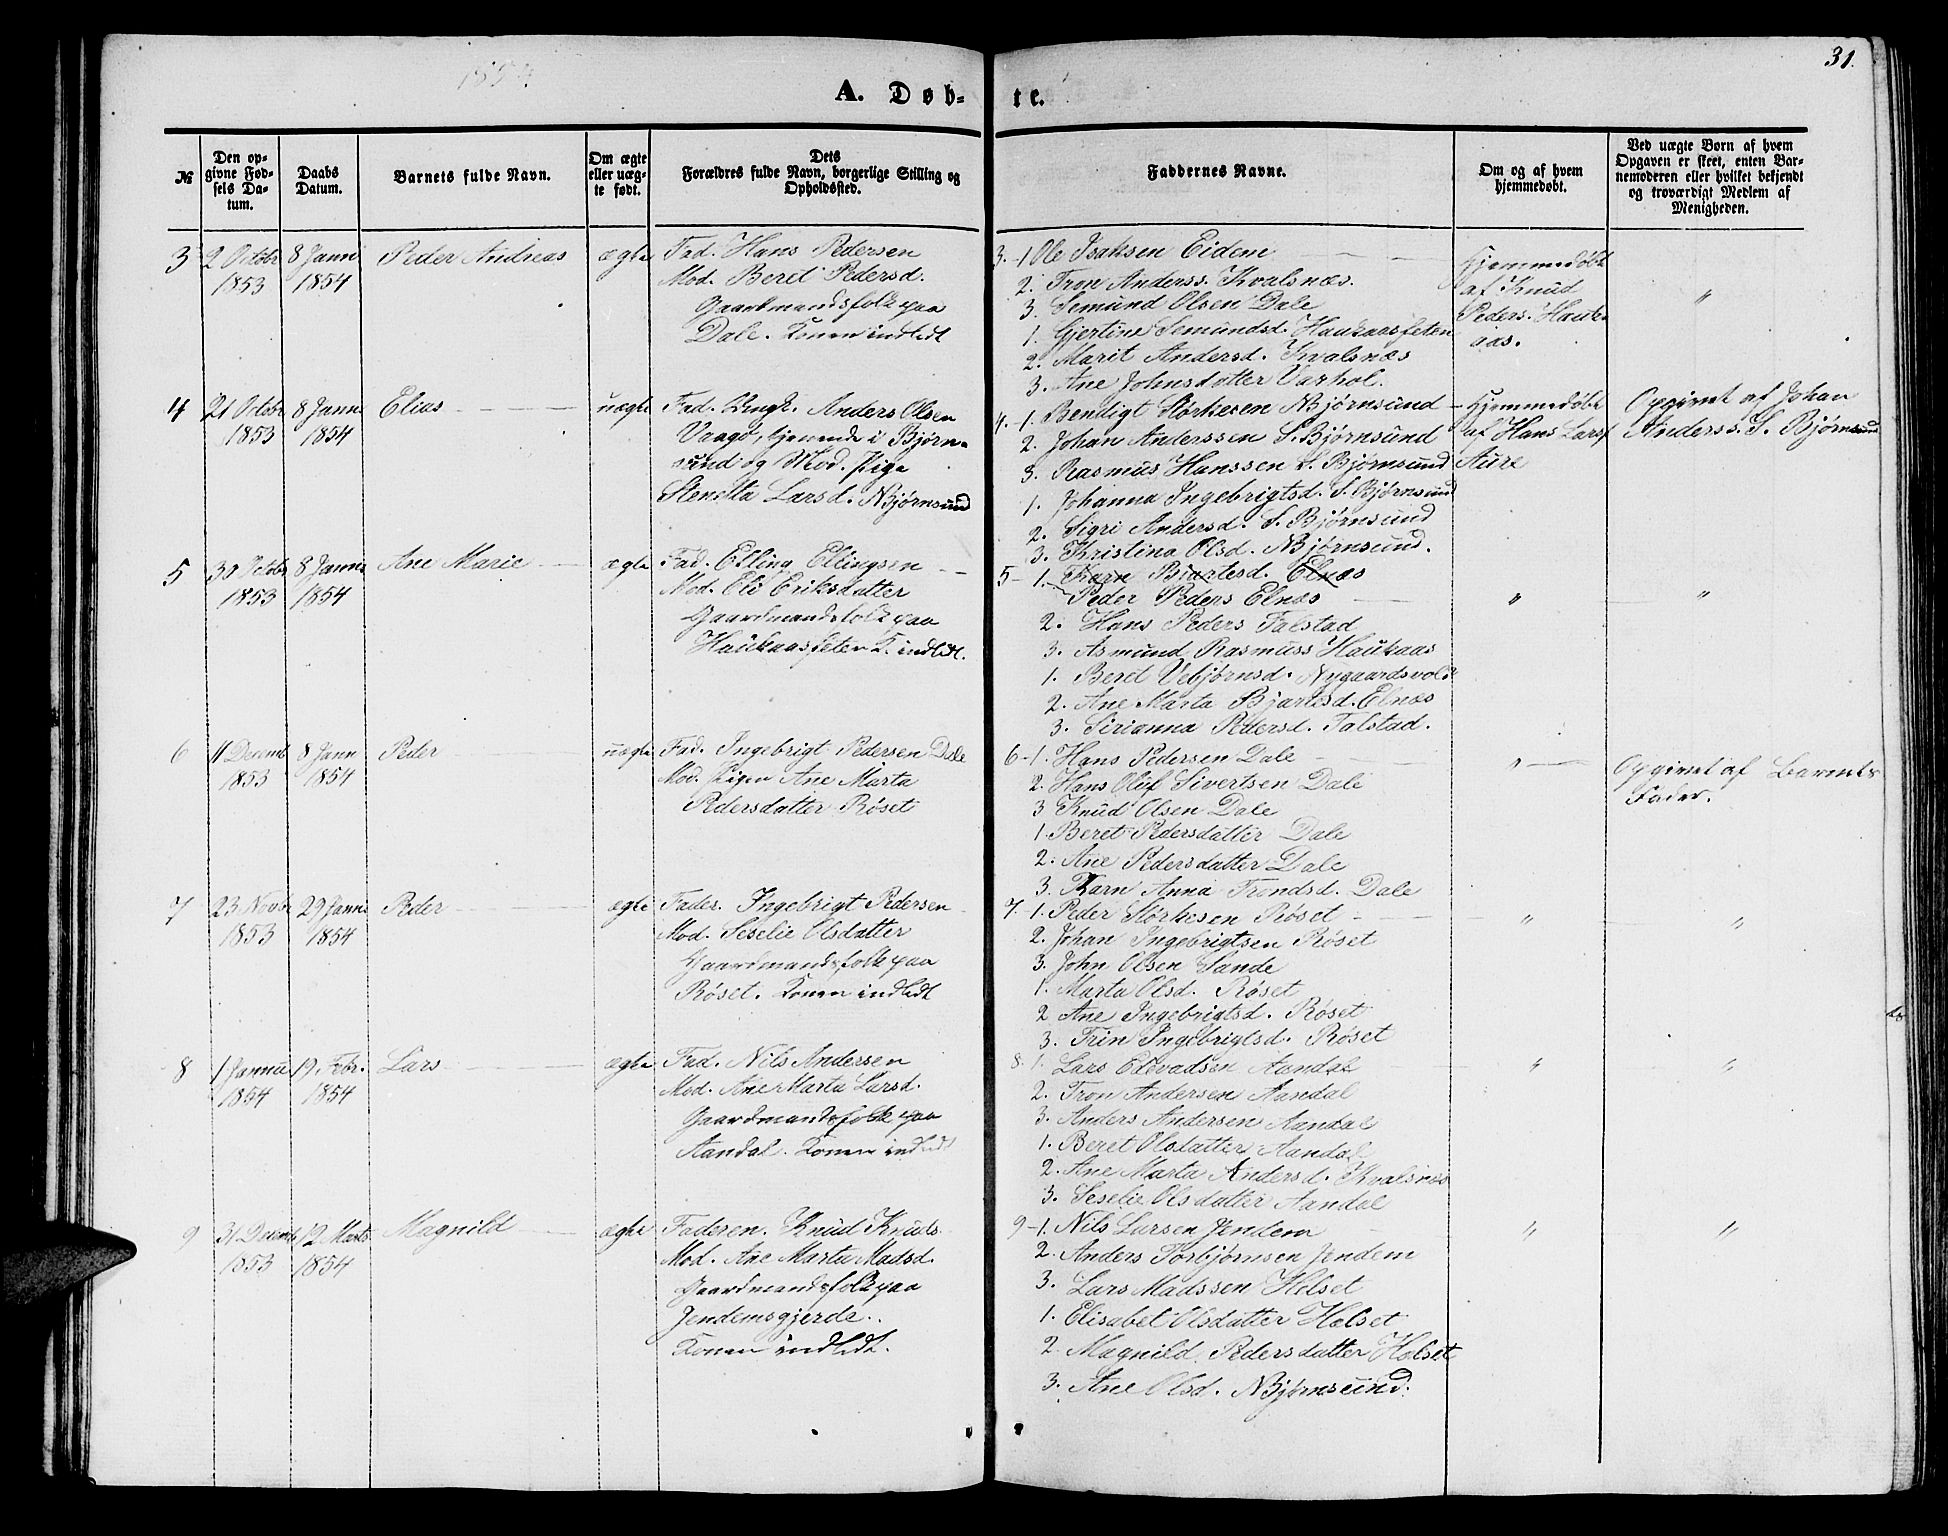 1854.
31.
A. Døb-
te.
№
Den op-
givne Fød-
sels Da-
tum.
Daabs
Datum.
Barnets fulde Navn.
Om ægte
eller uæg-
te født.
Dets
Forældres fulde Navn, borgerlige Stilling og
Opholdssted.
Faddernes Navne.
Om og af hvem
hjemmedøbt.
Ved uægte Børn af hvem
Opgaven er skeet, enten Bar-
nemoderen eller hvilket bekjendt
og troværdigt Medlem af
Menigheden.
3
2 Octobr
1853
8 Janu
1854
Peder Andreas
ægte
Fad. Hans Pedersen
Mod. Beret Pedersd.
Gaardmandsfolk paa
Dale. Konen indledt
3. - 1 Ole Isaksen Eidem
2. Tron Anderss. Kvalsnæs.
3. Semund Olsen Dale
1. Gjertine Semundsd. Haukaasseten
2. Marit Andersd. Kvalsnæs
3. Ane Johnsdatter Varhol.
Hjemmedøbt
af Knud
Peders. Hauk-
aas.
"
4
21 Octobr
1853
8 Janu
1854
Elias
uægte
Fad. Ungk. Anders Olsen
Vaagø, tjenende i Bjørn-
sund og Mod. Pige
Stenetta Larsd. NBjørnsund
4. - 1. Bendigt Størkesen NBjørnsund
2. Johan Anderssen S. Bjørnsund
3. Rasmus Hanssen S. Bjørnsund
1. Johanna Ingebrigtsd. S. Bjørnsund
2. Sigri Andersd. S. Bjørnsund
3. Kristina Olsd. NBjørnsund.
Hjemmedøbt
af Hans Larss
Aure
Opgivet af Johan
Anderss. S. Bjørnsund
5
30 Octobr
1853
8 Janu
1854
Ane Marie
ægte
Fad. Elling Ellingsen
Mod. Eli Eriksdatter
Gaardmandsfolk paa
Haukaasseten K. indledt.
5 - 1. Karn Bjartesd. Elnæs
Peder Peders Elnæs
2. Hans Peders Talstad
3. Asmund Rasmuss Haukaas
1. Beret Vebjørnsd. Nygaardsvold
2. Ane Marta Bjartesd. Elnæs
3. Sirianna Pedersd. Talstad.
"
"
6
11 Decemb
1853
8 Janu
1854
Peder
uægte
Fad. Ingebrigt Pedersen Dale
Mod. Pigen Ane Marta
Pedersdatter Røset
6 - 1. Hans Pedersen Dale
2. Hans Oluf Sivertsen Dale
3 Knud Olsen Dale
1. Beret Pedersdatter Dale
2. Ane Pedersdatter Dale
3. Karn Anna Trondsd. Dale
"
Opgivet af Barnets
Fader.
7
23 Novbr
1853
29 Janu
1854
Peder
ægte
Fader. Ingebrigt Pedersen
Mod. Seselie Olsdatter
Gaardmandsfolk paa
Røset. Konen indledt
7. - 1. Peder Størkesen Røset
2. Johan Ingebrigtsen Røset
3. John Olsen Sande
1. Marta Olsd. Røset
2 Ane Ingebrigtsd. Røset
3. Trin Ingebrigtsd. Røset
"
"
8
1 Janua
1854
19 Febr.
1854
Lars
ægte
Fad. Nils Andersen
Mod. Ane Marta Larsd.
Gaardmandsfolk paa
Aandal. Konen indledt
8. 1. Lars Edevadsen Aandal
2. Tron Andersen Aandal
3. Anders Andersen Aandal
1. Beret Olsdatter Aandal
2. Ane Marta Andersd. Kvalsnæs
3. Seselie Olsdatter Aandal
"
"
9
31 Decemb
1853
12 Marts
1854
Magnild
ægte
Faderen. Knud Knuds.
Mod. Ane Marta Madsd.
Gaardmandsfolk paa
Jendemsgjerde.
Konen indledt.
9 - 1. Nils Larsen Jendem
2. Anders Torbjørnsen Jendem
3. Lars Madssen Holset
1. Elisabet Olsdatter Holset
2. Magnild Pedersdatter Holset
3. Ane Olsd. NBjørnsund.
"
"